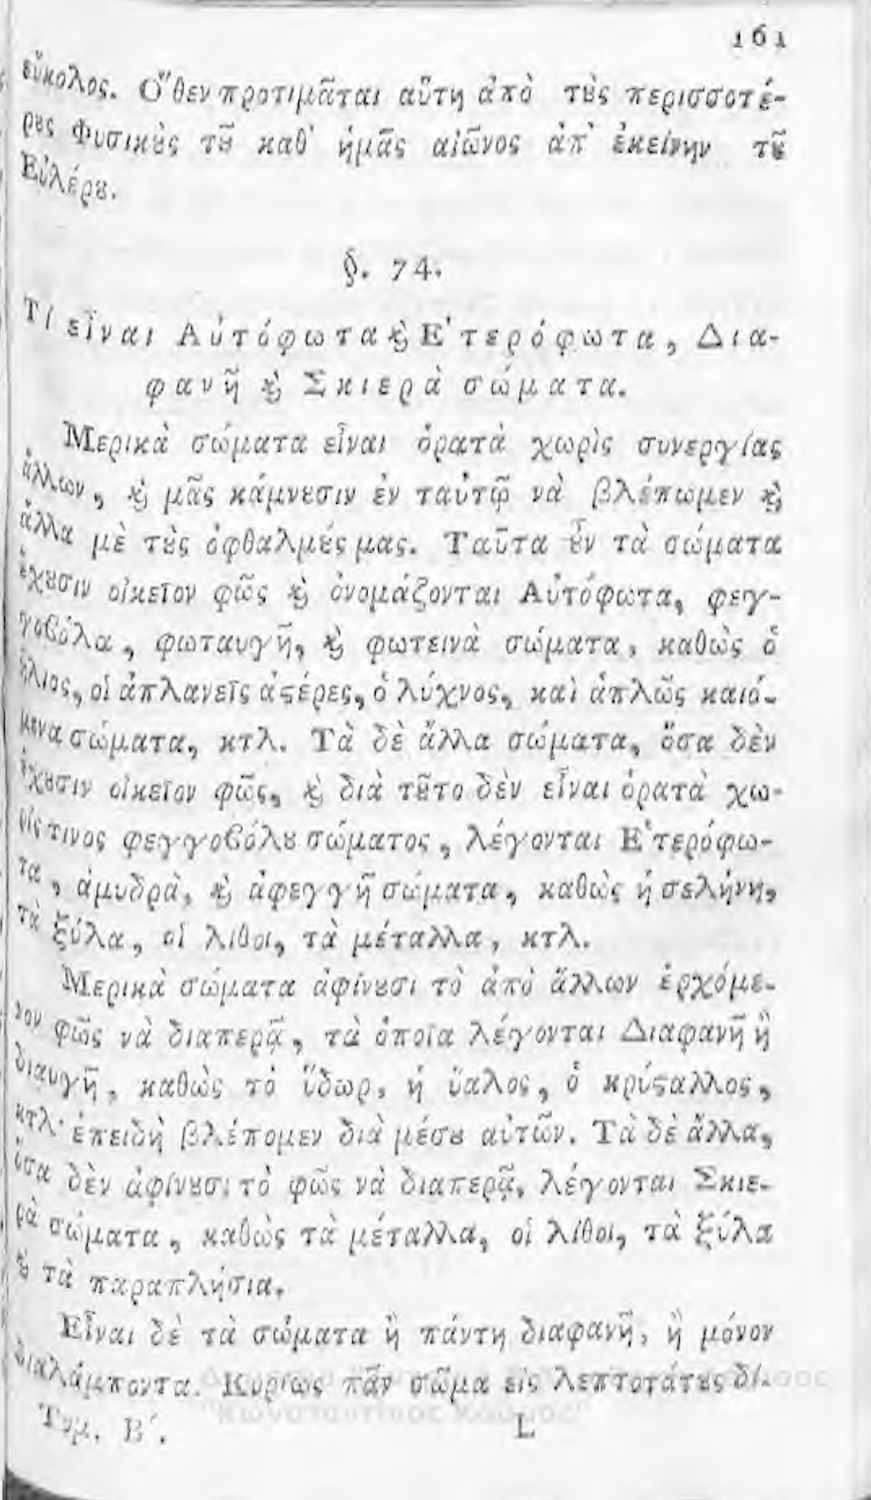 161
εὔκολος. Ὅθεν προτιμᾶται αὕτη ἀπὸ τȣ̀ς περισσοτέ-
ρȣς Φυσικȣ̀ς τȣ͂ καθ' ἡμᾶς αἰῶνος ἀπ' ἐκείνην τȣ͂
Εὐλέρȣ.
§. 74.
Τί εἶναι Αὐτόφωτα ϗ̀ Ἑτερόφωτα, Δια-
φανῆ ϗ̀ Σκιερὰ σώματα.
Μερικὰ σώματα εἶναι ὁρατὰ χωρὶς συνεργίας
ἄλλων, ϗ̀ μᾶς κάμνȣσιν ἐν ταὐτῷ νὰ βλέπωμεν ϗ̀
ἄλλα μὲ τȣ̀ς ὀφθαλμȣ́ς μας. Ταῦτα ȣ̓͂ν τὰ σώματα
ἔχȣσιν οἰκεῖον φῶς ϗ̀ ὀνομάζονται Αὐτόφωτα, φεγ-
γοβόλα, φωταυγῆ, ϗ̀ φωτεινὰ σώματα, καθὼς ὁ
ἥλιος, οἱ ἀπλανεῖς ἀϛέρες, ὁ λύχνος, καὶ ἁπλῶς καιό-
μενα σώματα, κτλ. Τὰ δὲ ἄλλα σώματα, ὅσα δὲν
ἔχȣσιν οἰκεῖον φῶς, ϗ̀ διὰ τȣ͂το δὲν εἶναι ὁρατὰ χω-
ρίς τινος φεγγοβόλȣ σώματος, λέγονται Ἑτερόφω-
τα, ἀμυδρὰ, ϗ̀ ἀφεγγῆ σώματα, καθὼς ἡ σελήνη,
τὰ ξύλα, οἱ λίθοι, τὰ μέταλλα, κτλ.
Μερικὰ σώματα ἀφίνȣσι τὸ ἀπὸ ἄλλων ἐρχόμε-
νον φῶς νὰ διαπερᾷ, τὰ ὁποῖα λέγονται Διαφανῆ ἢ
διαυγῆ, καθὼς τὸ ὕδωρ, ἡ ὕαλος, ὁ κρύϛαλλος,
κτλ· ἐπειδὴ βλέπομεν διὰ μέσȣ αὐτῶν. Τὰ δὲ ἄλλα,
ὅσα δὲν ἀφίνȣσι τὸ φῶς νὰ διαπερᾷ, λέγονται Σκιε-
ρὰ σώματα, καθὼς τὰ μέταλλα, οἱ λίθοι, τὰ ξύλα
ϗ̀ τὰ παραπλήσια.
Εἶναι δὲ τὰ σώματα ἢ πάντη διαφανῆ, ἢ μόνον
διαλάμποντα. Κυρίως πᾶν σῶμα εἰς λεπτοτάτȣς δί-
Τομ. Β΄. L